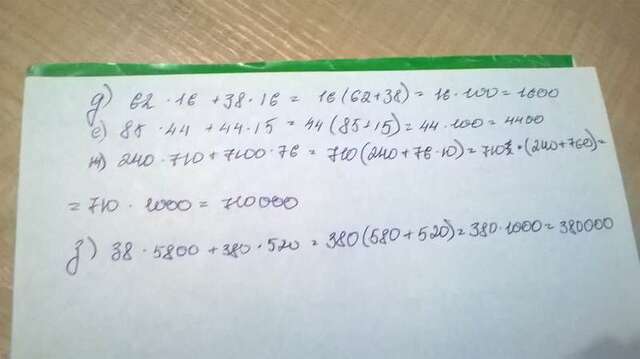 д) 62 · 16 + 38 · 16 = 16 (62+38) = 16 · 100 = 1600
е) 85 · 44 + 44 · 15 = 44 (85+15) = 44 · 100 = 4400
ж) 240 · 710 + 7100 · 76 = 710 (240 + 76 · 10) = 710 · (240+760) =
= 710 · 1000 = 710000
з) 38 · 5800 + 380 · 520 = 380 (580 + 520) = 380 · 1000 = 380000